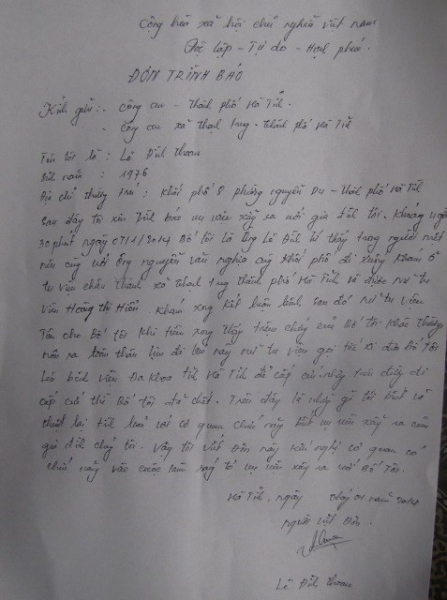 Cộng hòa xã hội chủ nghĩa việt nam.
Độc lập - Tự do - Hạnh phúc.
ĐƠN TRÌNH BÁO
Kính gửi: - Công an - thành phố Hà Tĩnh -
- Công an xã thạch trung - thành phố Hà Tĩnh
Tên tôi là: Lê Đình thoan
Sinh năm: 1976
Địa chỉ thường trú: Khối phố 8 phường nguyễn Du - thành phố Hà Tĩnh
Sau đây tôi xin trình báo vụ việc xảy ra với gia đình tôi. Khoảng
30 phút ngày 07/1/2014 Bố tôi là ông Lê Đình thấy trong người mệt
nên cùng với ông nguyễn văn nghĩa cùng khối phố đi xuống khám ở
tu viện thanh xã thạch trung thành phố Hà Tĩnh và được nữ tu
viên Hoàng thị Hiền khám xong kết luận bệnh sau đó nữ tu viên
tiêm cho Bố tôi khi tiêm xong thấy triệu chứng của Bố tôi khác thường
nên ông nghĩa nữ tu viện gọi tắc xi đưa bố tôi
lên bệnh viện Đa khoa tỉnh Hà Tĩnh để cấp cứu
cấp cứu thì Bố tôi đã chết. Trên đây là những gì tôi
thuật lại với cơ quan chức năng vụ việc xảy ra của
gia đình chúng tôi. Vậy tôi viết đơn này kiến nghị cơ quan có
chức năng vào cuộc làm sáng tỏ vụ việc xảy ra với Bố tôi.
Hà Tĩnh, ngày tháng 01 năm 2014
người viết Đơn.
Lê Đình thoan